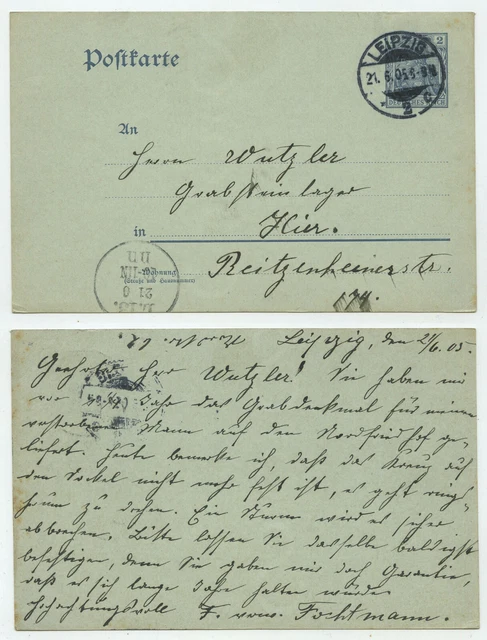 Postkarte
LEIPZIG
21.6.05.
2
DEUTSCHES REICH
An
Herrn Wutzler
Grabsteinlager
Hier.
in
Wohnung
(Straße und Hausnummer)
Reitzenhainerstr.
Leipzig, den 21/6. 05.
Geehrter Herr Wutzler! Sie haben mir
vor Jahr das Grabdenkmal für meinen
verstorbenen Mann auf den Nordfriedhof ge-
liefert. Heute bemerke ich, daß das Kreuz auf
den Sockel nicht mehr fest ist, es geht rings-
herum zu drehen. Ein Sturm wird es sicher
abbrechen. Bitte lassen Sie dasselbe baldigst
befestigen, denn Sie gaben mir doch Garantie,
daß es sich lange Jahre halten würde.
Hochachtungsvoll F. verw. Fochtmann.